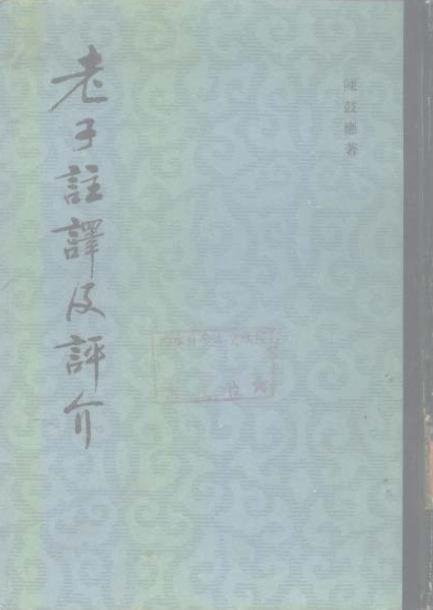 老子註譯及評介
陳鼓應著